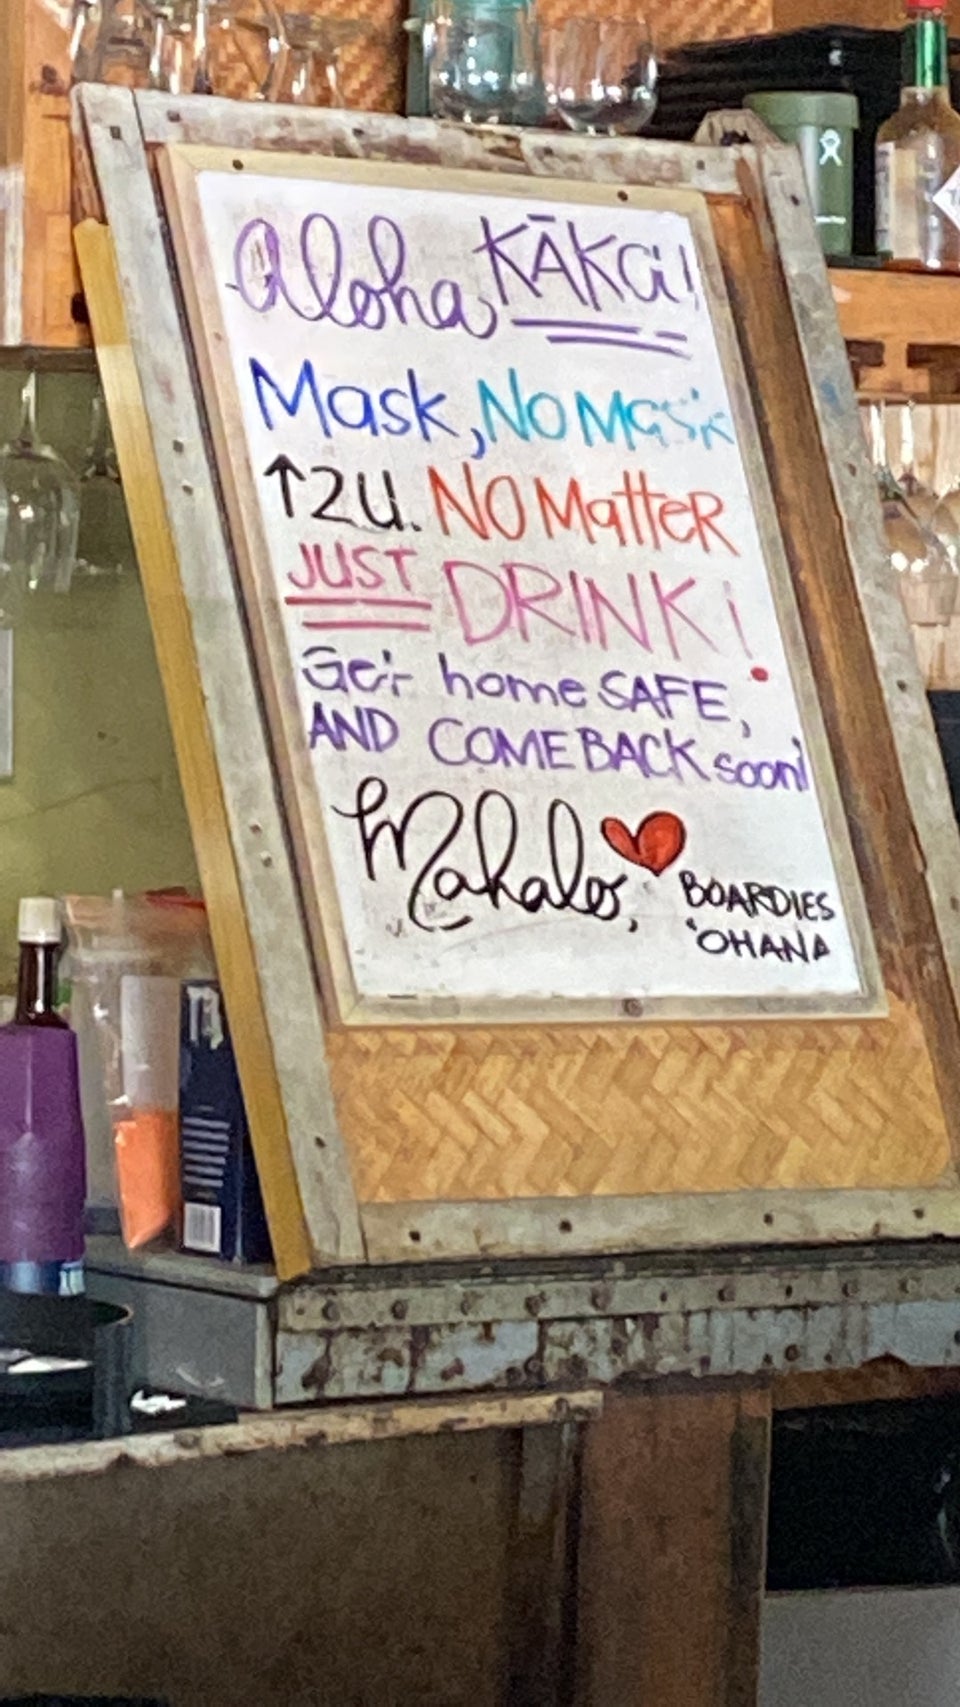 Aloha KĀKOU!
Mask, NO Mask
↑2U. NO MatteR
JUST DRINK!
Get home SAFE,
AND COME BACK soon!
Mahalo,
BOARDIES
'OHANA